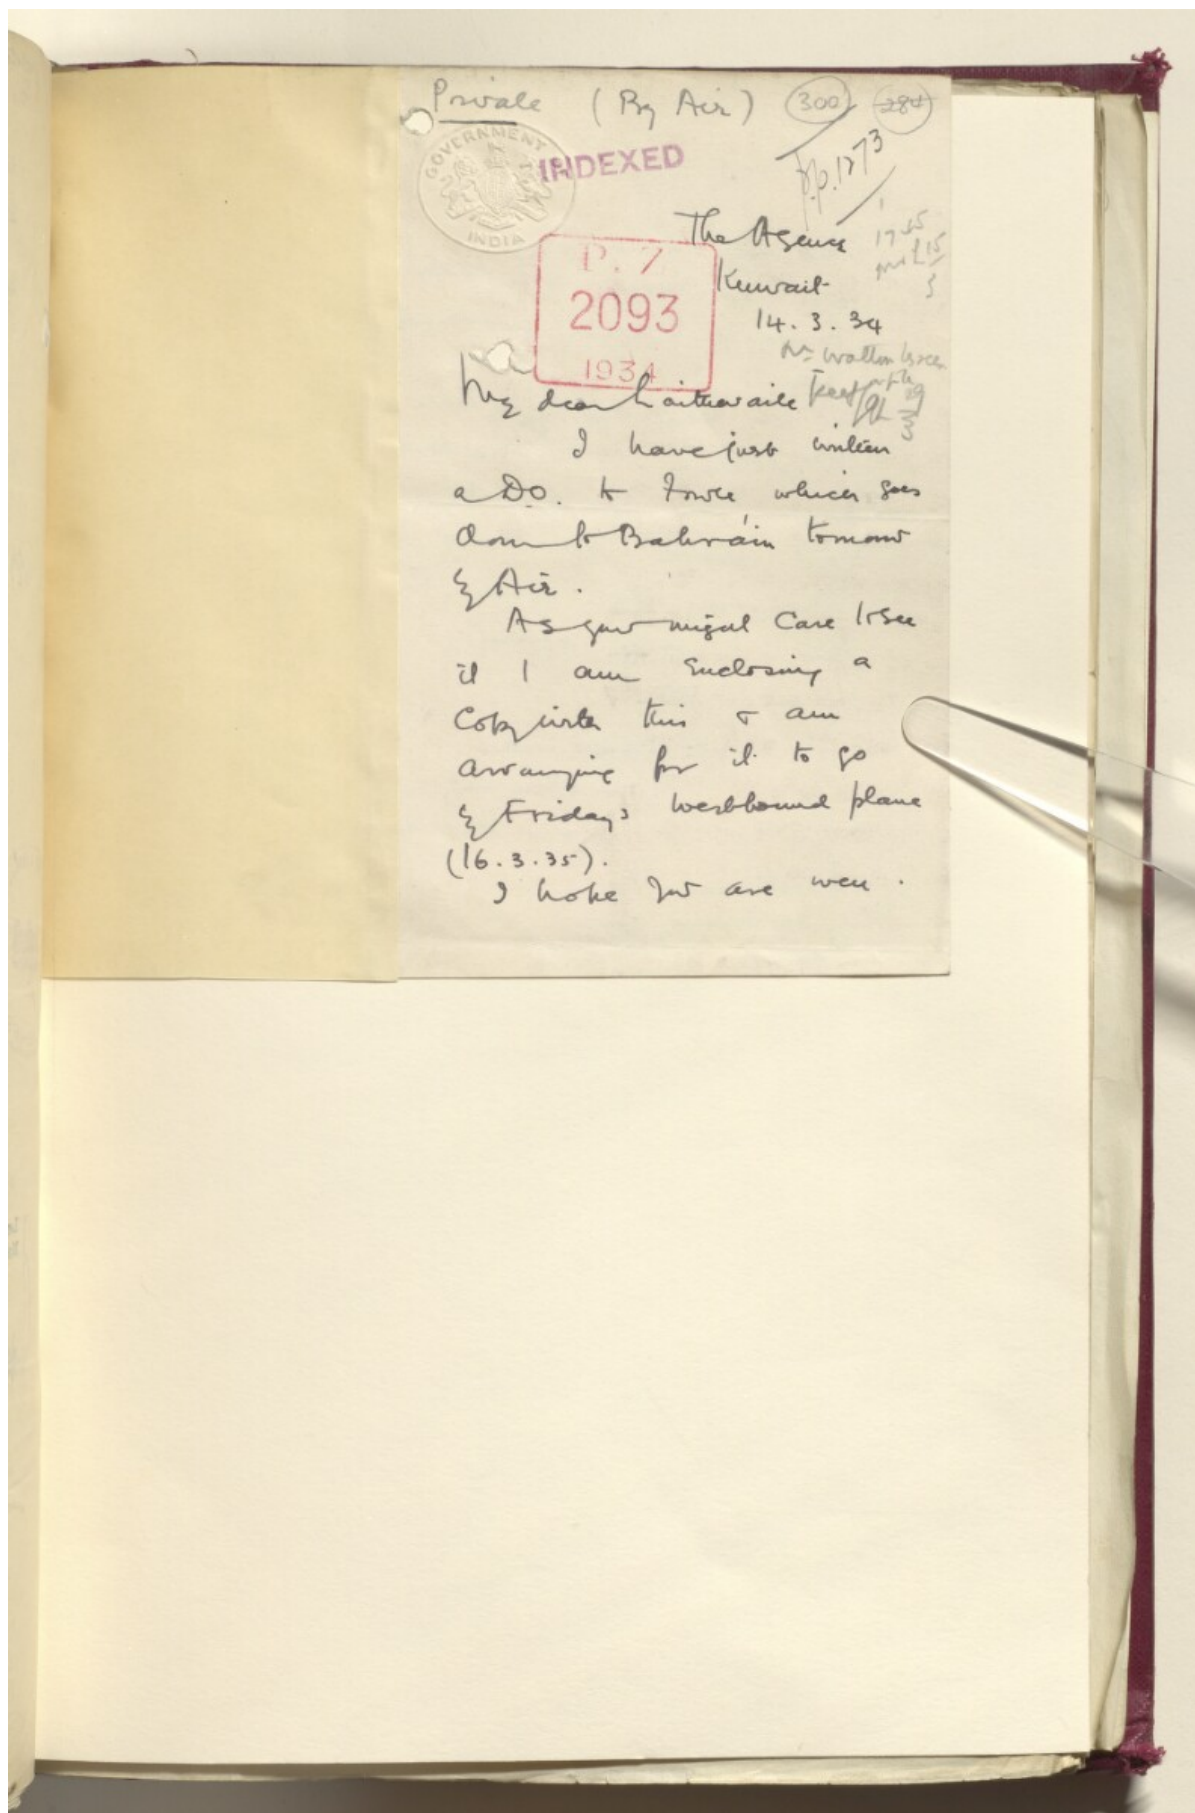 Private (By Air) 300 284
GOVERNMENT
INDIA
INDEXED
p.p. 1273
The Agency
Kuwait
14.3.34
P.Z
2093
1934
My dear Laithwaite
I have just written
a D.O. to Fowle which goes
down to Bahrain tomorrow
by Air.
As you might care to see
it I am enclosing a
Copy with this & am
arranging for it to go
by Friday's westbound plane
(16.3.35).
I hope you are well.